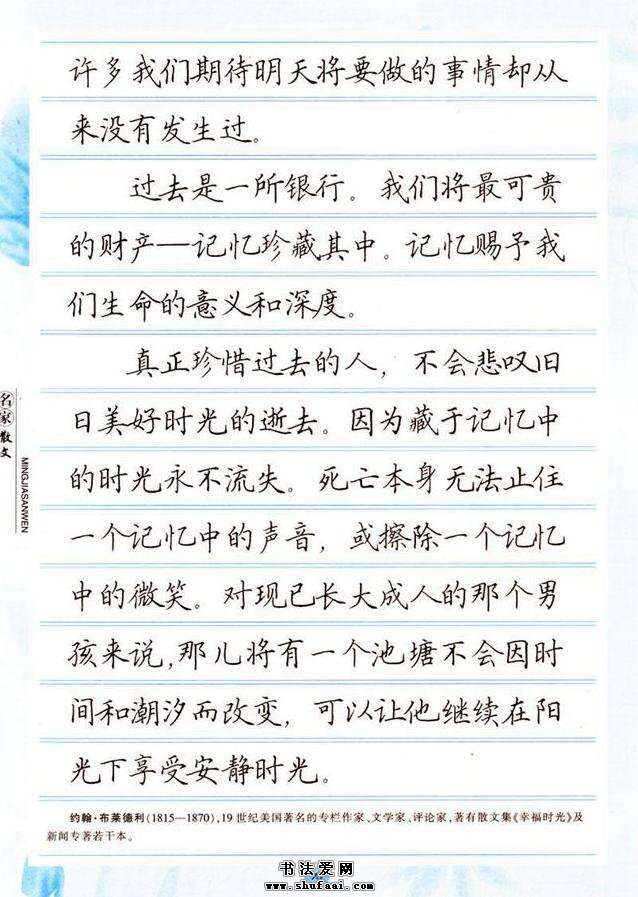 许多我们期待明天将要做的事情却从
来没有发生过。
过去是一所银行。我们将最可贵
的财产—记忆珍藏其中。记忆赐予我
们生命的意义和深度。
真正珍惜过去的人，不会悲叹旧
日美好时光的逝去。因为藏于记忆中
的时光永不流失。死亡本身无法止住
一个记忆中的声音，或擦除一个记忆
中的微笑。对现已长大成人的那个男
孩来说,那儿将有一个池塘不会因时
间和潮汐而改变，可以让他继续在阳
光下享受安静时光。
名家散文
MINGJIASANWEN
约翰·布莱德利(1815—1870),19世纪美国著名的专栏作家、文学家、评论家,著有散文集《幸福时光》及
新闻专著若干本。
书法爱网
www.shufaai.com